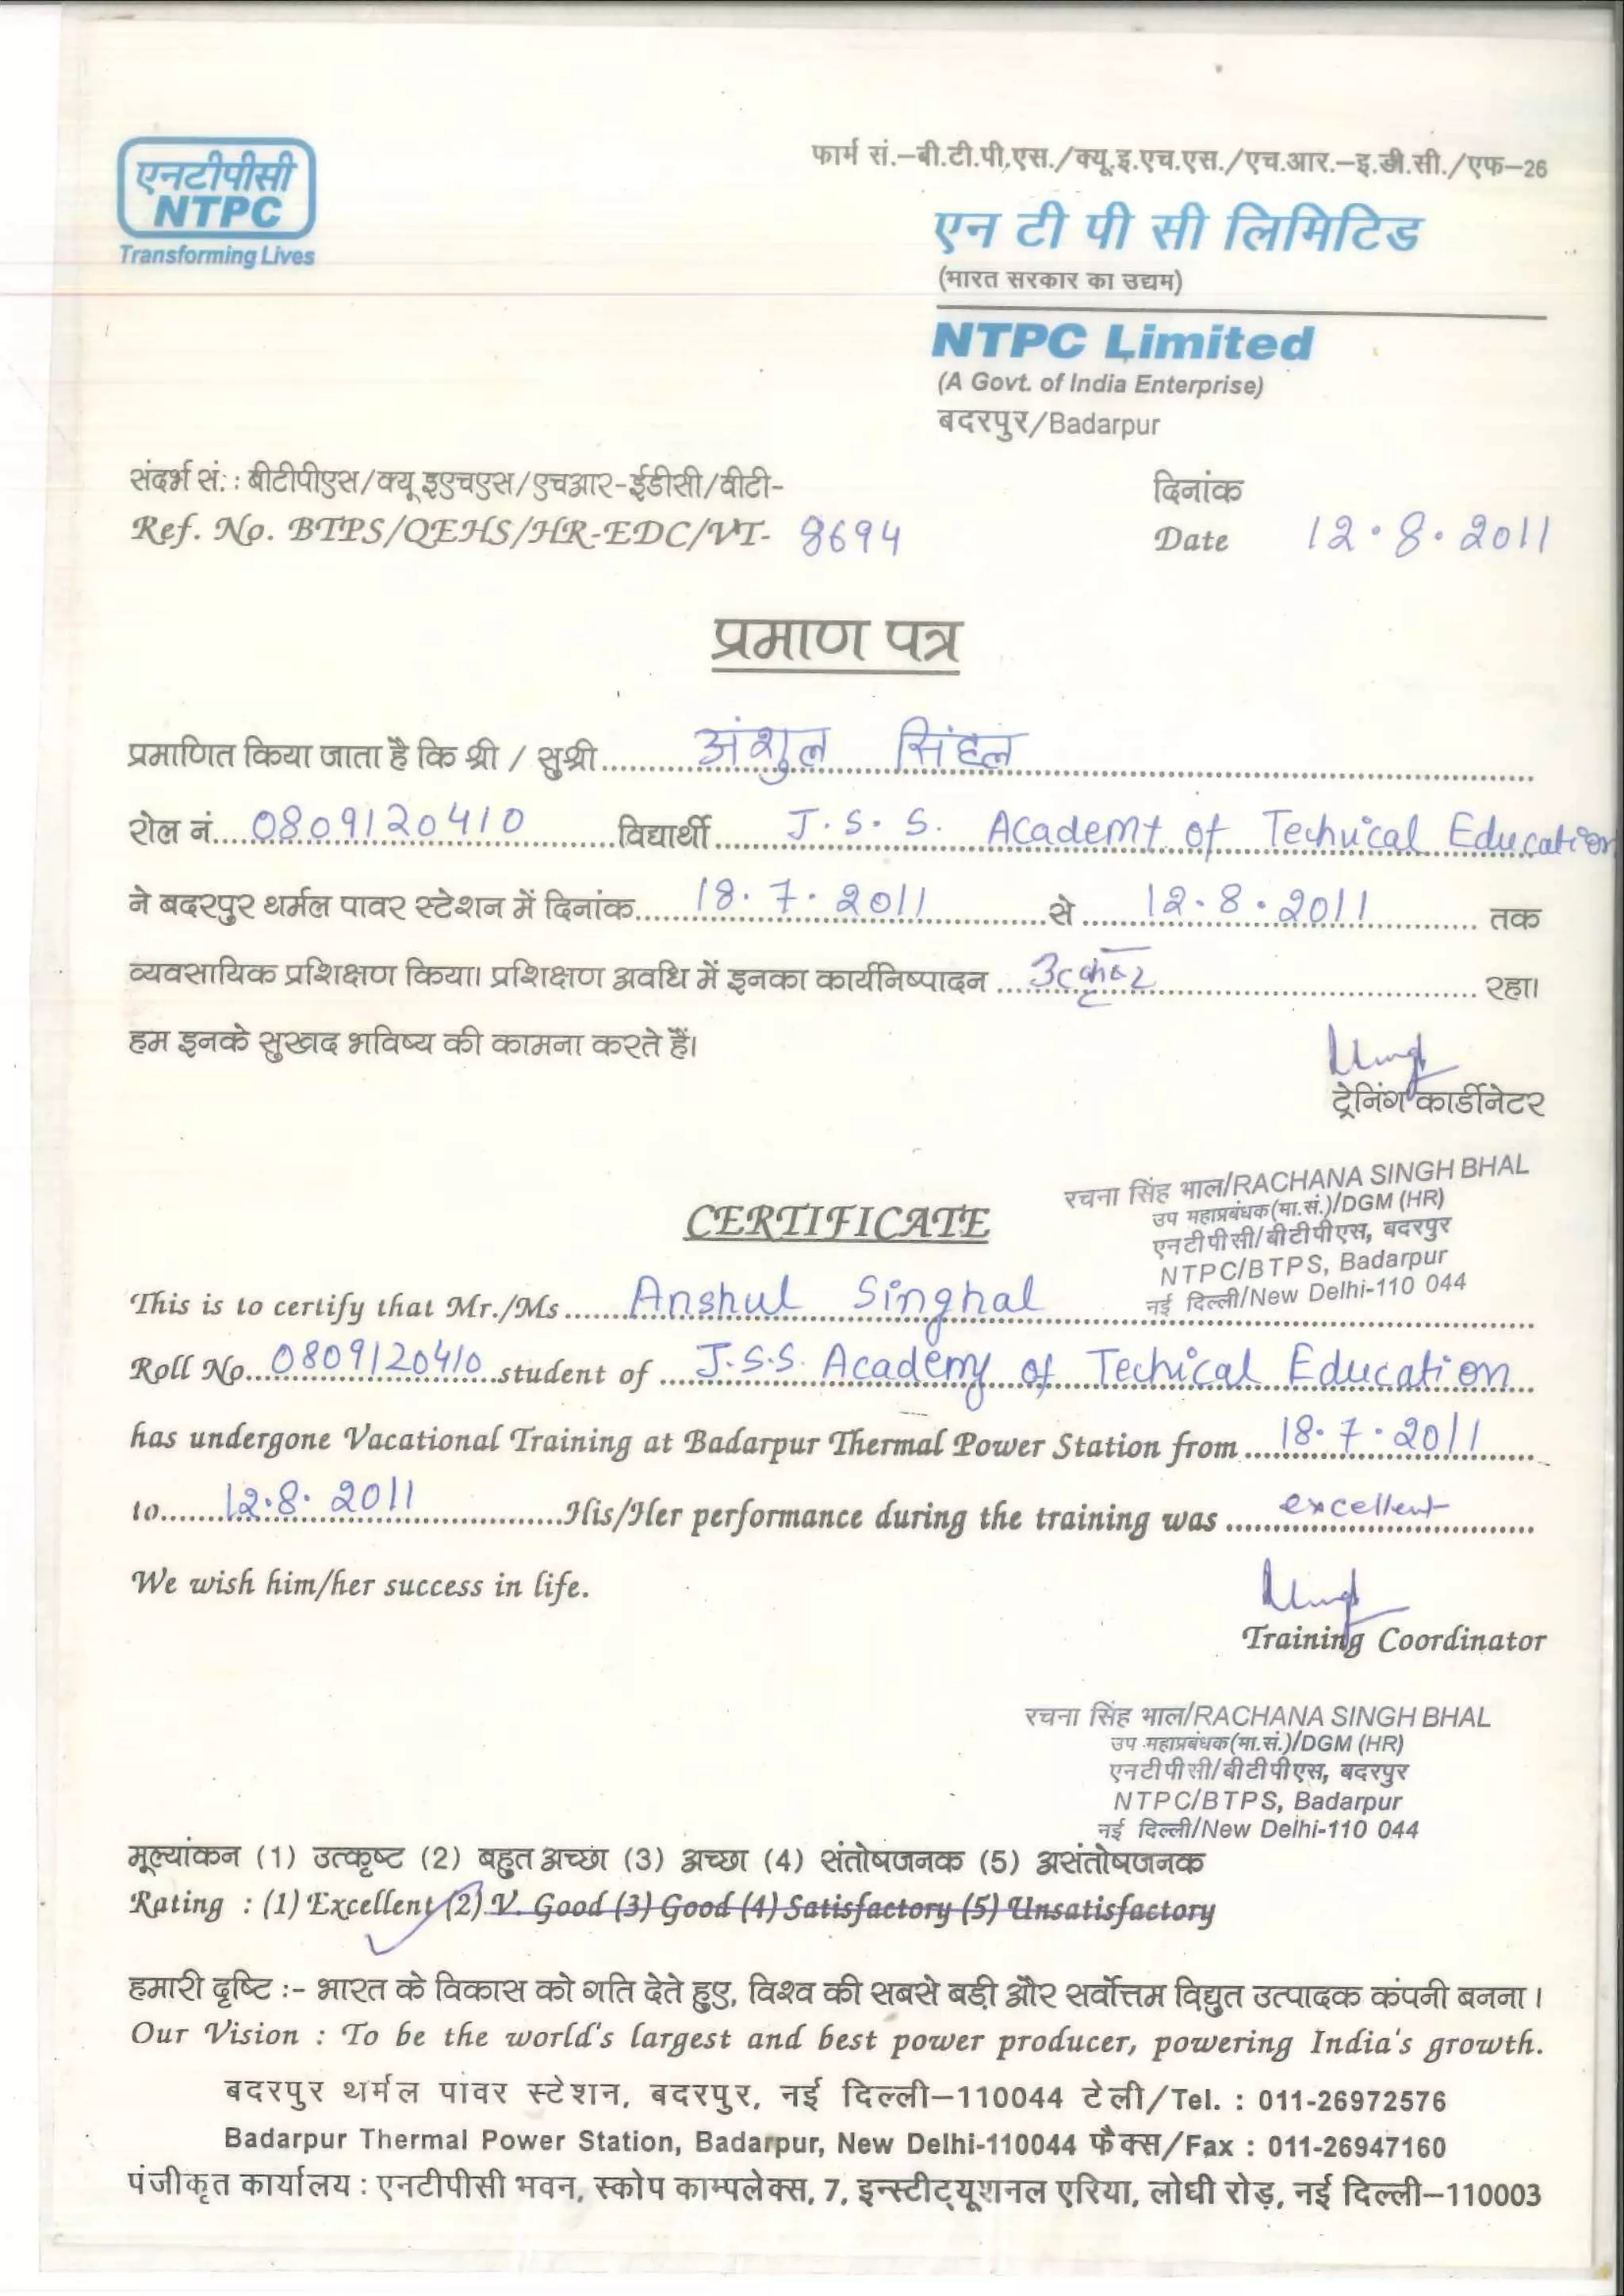 एनटीपीसी
NTPC
Transforming Lives
फार्म सं.–बी.टी.पी.एस./क्यू.इ.एच.एस./एच.आर.–इ.डी.सी./एफ–26
एन टी पी सी लिमिटिड
(भारत सरकार का उद्यम)
NTPC Limited
(A Govt. of India Enterprise)
बदरपुर/Badarpur
संदर्भ सं: : बीटीपीएस/क्यू इएचएस/एचआर-ईडीसी/वीटी-
दिनांक
Ref. No. BTPS/QEHS/HR-EDC/VT- 8694
Date 12.8.2011
प्रमाण पत्र
प्रमाणित किया जाता है कि श्री / सुश्री..........अंशुल सिंहल..........
रोल नं....0809120410..........विद्यार्थी..........J.S.S. Academt of Techical Education
ने बदरपुर थर्मल पावर स्टेशन में दिनांक......18.7.2011..........से......12.8.2011.......... तक
व्यवसायिक प्रशिक्षण किया। प्रशिक्षण अवधि में इनका कार्यनिष्पादन .................... रहा।
हम इनके सुखद भविष्य की कामना करते हैं।
ट्रेनिंग कार्डीनेटर
रचना सिंह भाल/RACHANA SINGH BHAL
उप महाप्रबंधक(मा.सं.)/DGM (HR)
एनटीपीसी/बीटीपीएस, बदरपुर
NTPC/BTPS, Badarpur
नई दिल्ली/New Delhi-110 044
CERTIFICATE
This is to certify that Mr./Ms.......Anshul Singhal..........
Roll No....0809120410...student of .....J.S.S. Academy of Techical Education...
has undergone Vacational Training at Badarpur Thermal Power Station from....18.7.2011.....
to.......12.8.2011..........His/Her performance during the training was ......excellent......
We wish him/her success in life.
Training Coordinator
रचना सिंह भाल/RACHANA SINGH BHAL
उप महाप्रबंधक(मा.सं.)/DGM (HR)
एनटीपीसी/बीटीपीएस, बदरपुर
NTPC/BTPS, Badarpur
नई दिल्ली/New Delhi-110 044
मूल्यांकन (1) उत्कृष्ट (2) बहुत अच्छा (3) अच्छा (4) संतोषजनक (5) असंतोषजनक
Rating : (1) Excellent (2) V. Good (3) Good (4) Satisfactory (5) Unsatisfactory
हमारी दृष्टि :- भारत के विकास को गति देते हुए, विश्व की सबसे बड़ी और सर्वोत्तम विद्युत उत्पादक कंपनी बनना ।
Our Vision : To be the world's largest and best power producer, powering India's growth.
बदरपुर थर्मल पावर स्टेशन, बदरपुर, नई दिल्ली–110044 टेली/Tel. : 011-26972576
Badarpur Thermal Power Station, Badarpur, New Delhi-110044 फैक्स/Fax : 011-26947160
पंजीकृत कार्यालय : एनटीपीसी भवन, स्कोप काम्पलेक्स, 7, इन्स्टीट्यूशनल एरिया, लोधी रोड़, नई दिल्ली–110003